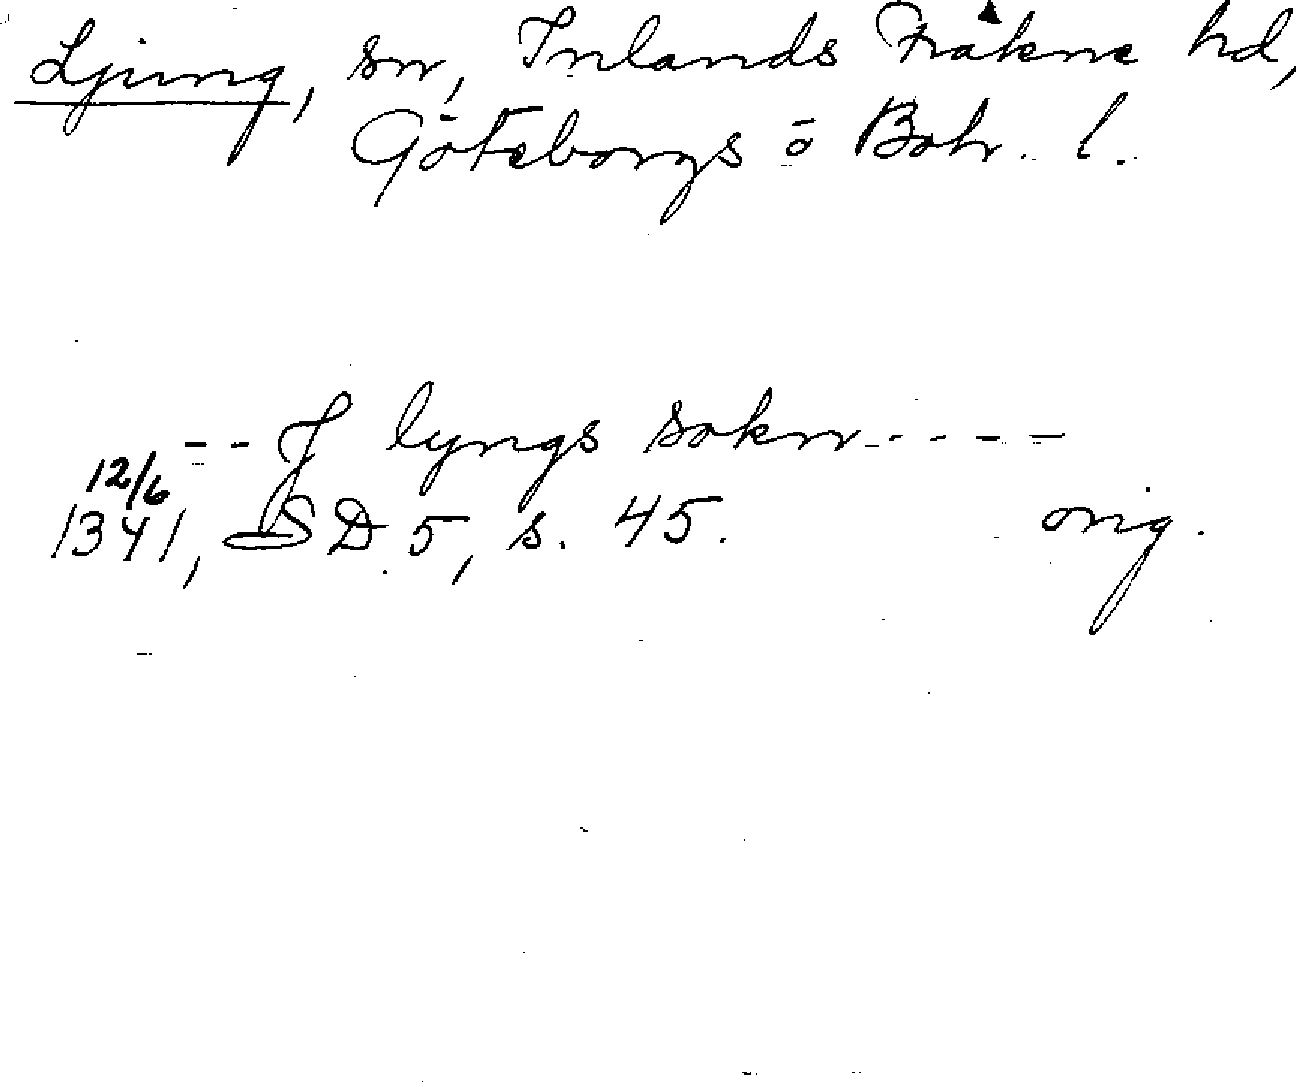 Ljung, sn, Inlands Fräkne hd,
Göteborgs o Boh. l.
--J lyngs sokn-----
12/6
1341, SD 5, s. 45. orig.